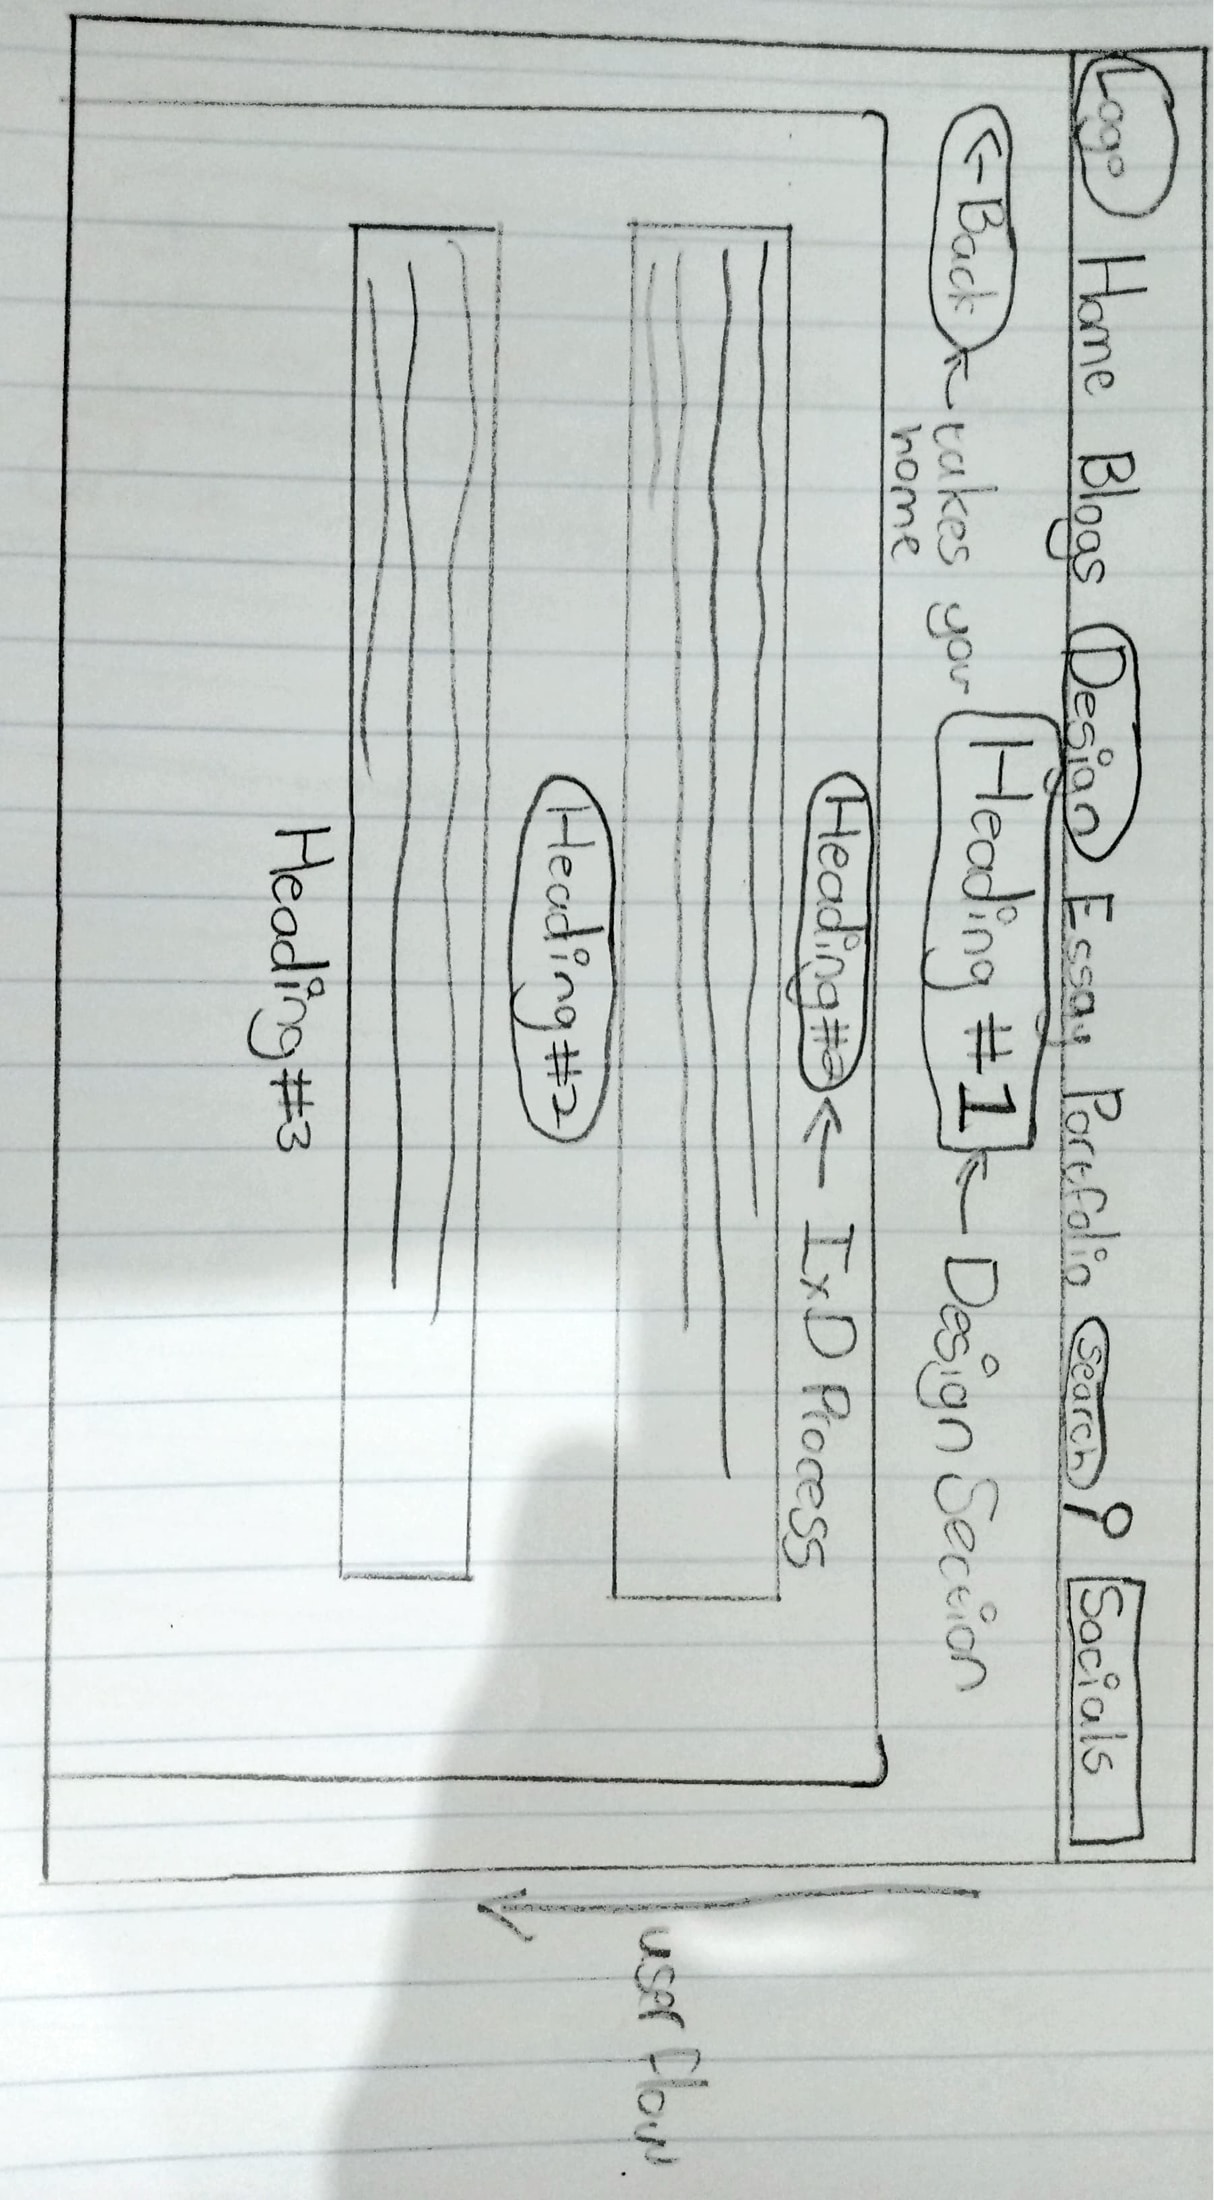 Logo Home Blogs Design Essay Portfolio Search Socials
← Back ← takes you home Heading #1 ← Design Section
Heading #2 ← IxD Process
Heading #2
Heading #3
user flow